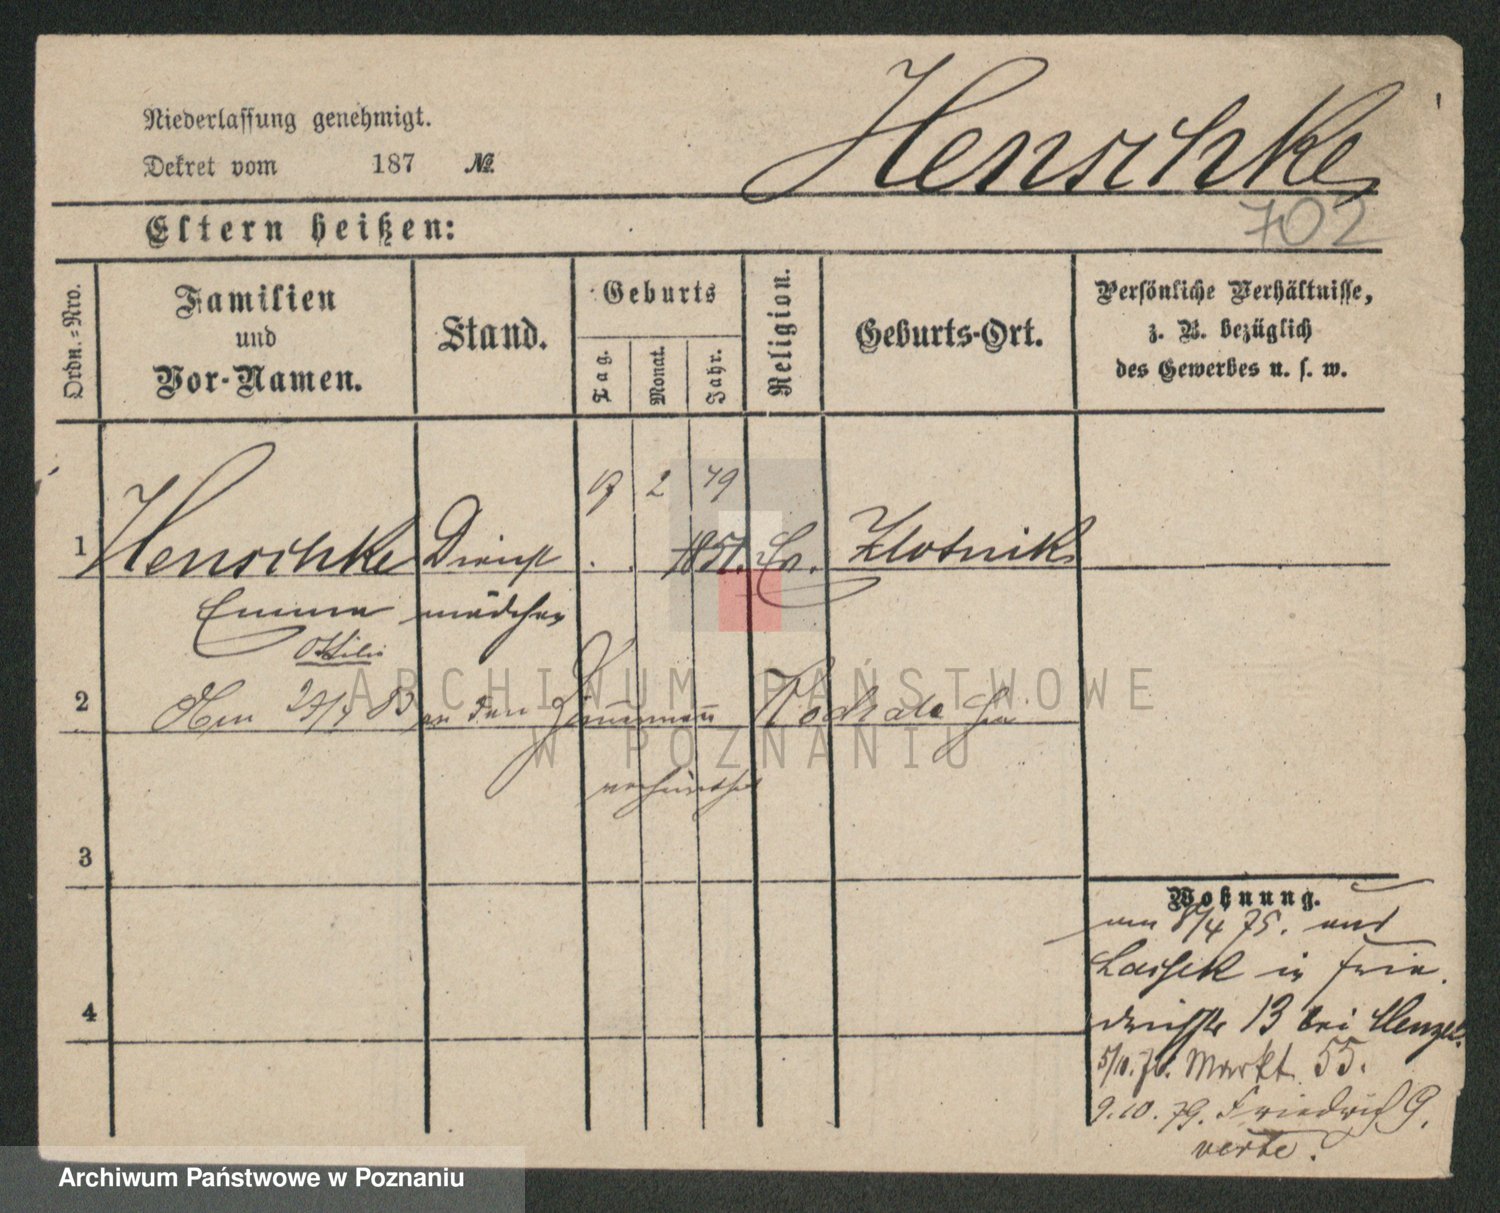 Niederlassung genehmigt.
Dekret vom 187 №
Henschke
702
Eltern heißen:
Ordn.-Nro.
Familien
und
Vor-Namen.
Stand.
Geburts
Tag.
Monat.
Jahr.
Religion.
Geburts-Ort.
Persönliche Verhältnisse,
z. B. bezüglich
des Gewerbes u. s. w.
2 49
1 Henschke Dienst . . 1851. Ev. Zlotnik
Emma mädchen
Ottilie
2 83 an den
verheirathet
3
4
Wohnung.
am 8/4 75. aus
Lassek in Frie
drichstr 13 bei Menzel.
Markt 55.
9.10.79. Friedrich 9.
verte.
ARCHIWUM PAŃSTWOWE
W POZNANIU
Archiwum Państwowe w Poznaniu